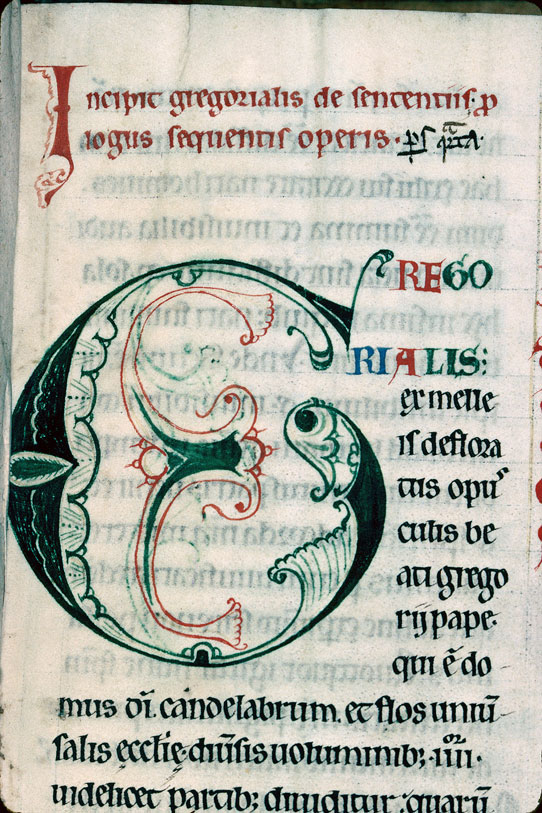 Incipit gregorialis de sententiis. p
logus sequentis operis. ps qrta.
GREGO
RIALIS:
ex melle
is deflora
tus opus
culis be
ati grego
rij pape.
qui ē do
mus dī. candelabrum. et flos uniū
salis ecclīe. diūsis uoluminib; .iiii.or
uidelicet partib; diuiditur: quarū